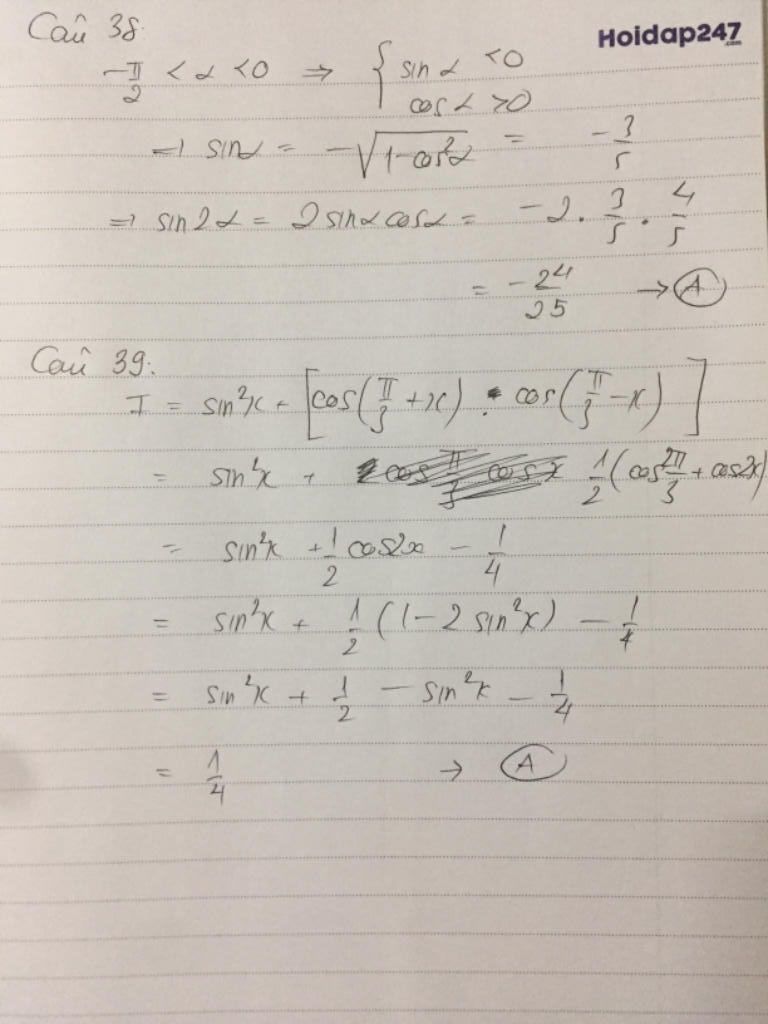 Câu 38.
Hoidap247
.com
-π/2 < α < 0 ⇒ { sin α < 0
cos α > 0
⇒ sin α = -√(1-cos²α) = -3/5
⇒ sin 2α = 2 sin α cos α = -2 . 3/5 . 4/5
= -24/25 → A
Câu 39.
I = sin²x + [cos(π/3 + x) . cos(π/3 - x)]
= sin²x + 1/2 (cos 2π/3 + cos2x)
= sin²x + 1/2 cos2x - 1/4
= sin²x + 1/2 (1 - 2 sin²x) - 1/4
= sin²x + 1/2 - sin²x - 1/4
= 1/4 → A